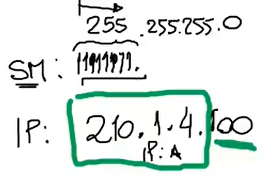 255.255.255.0
SM: 11111111.
IP: 210.1.4.100
IP: A